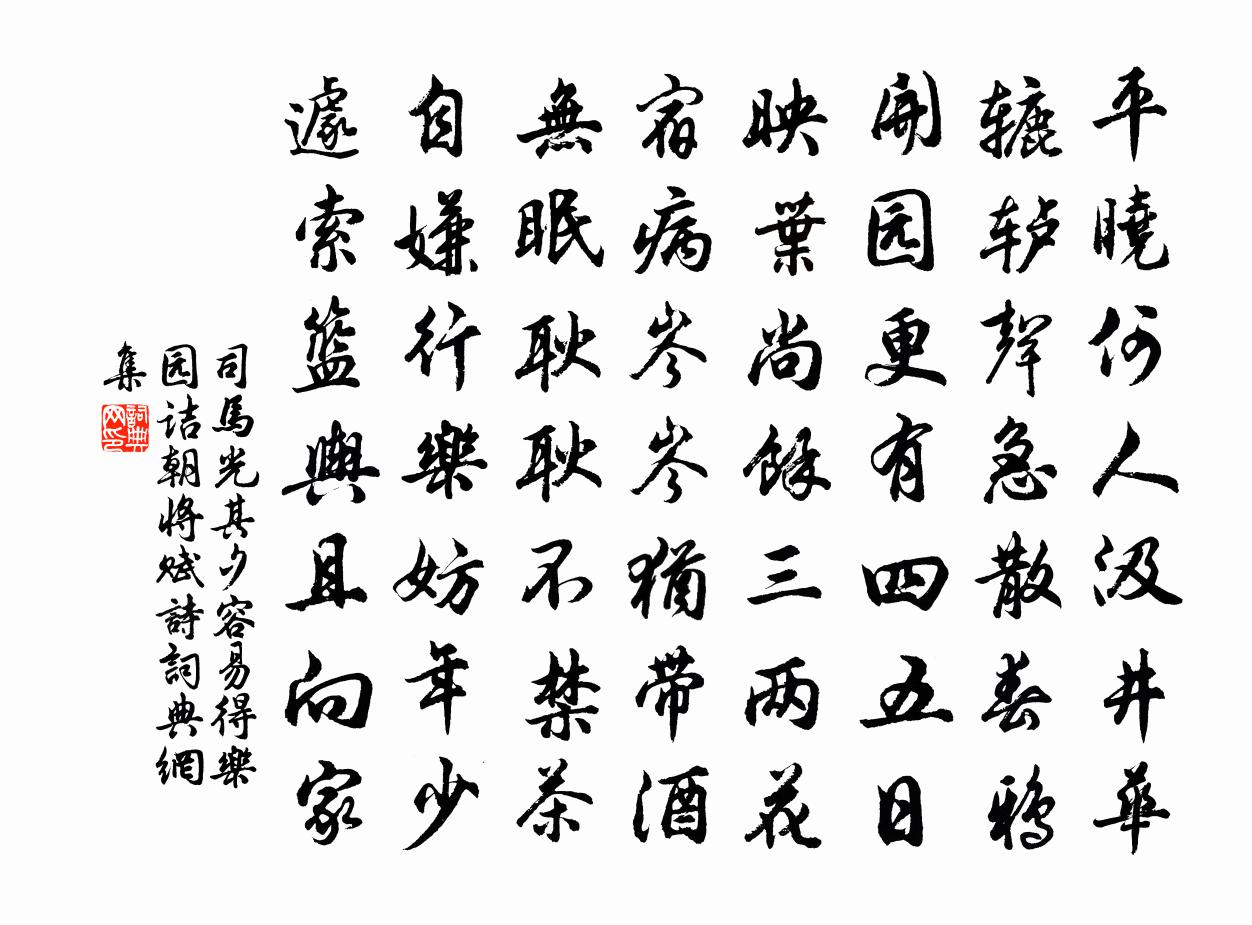 平曉何人汲井華
辘轳聲急散春鴉
開园更有四五日
映葉尚餘三两花
宿病岑岑猶带酒
無眠耿耿不禁茶
自嫌行樂妨年少
遽索籃輿且向家
司馬光其夕容易得樂
园诘朝将赋詩詞典網
集
詞典网印